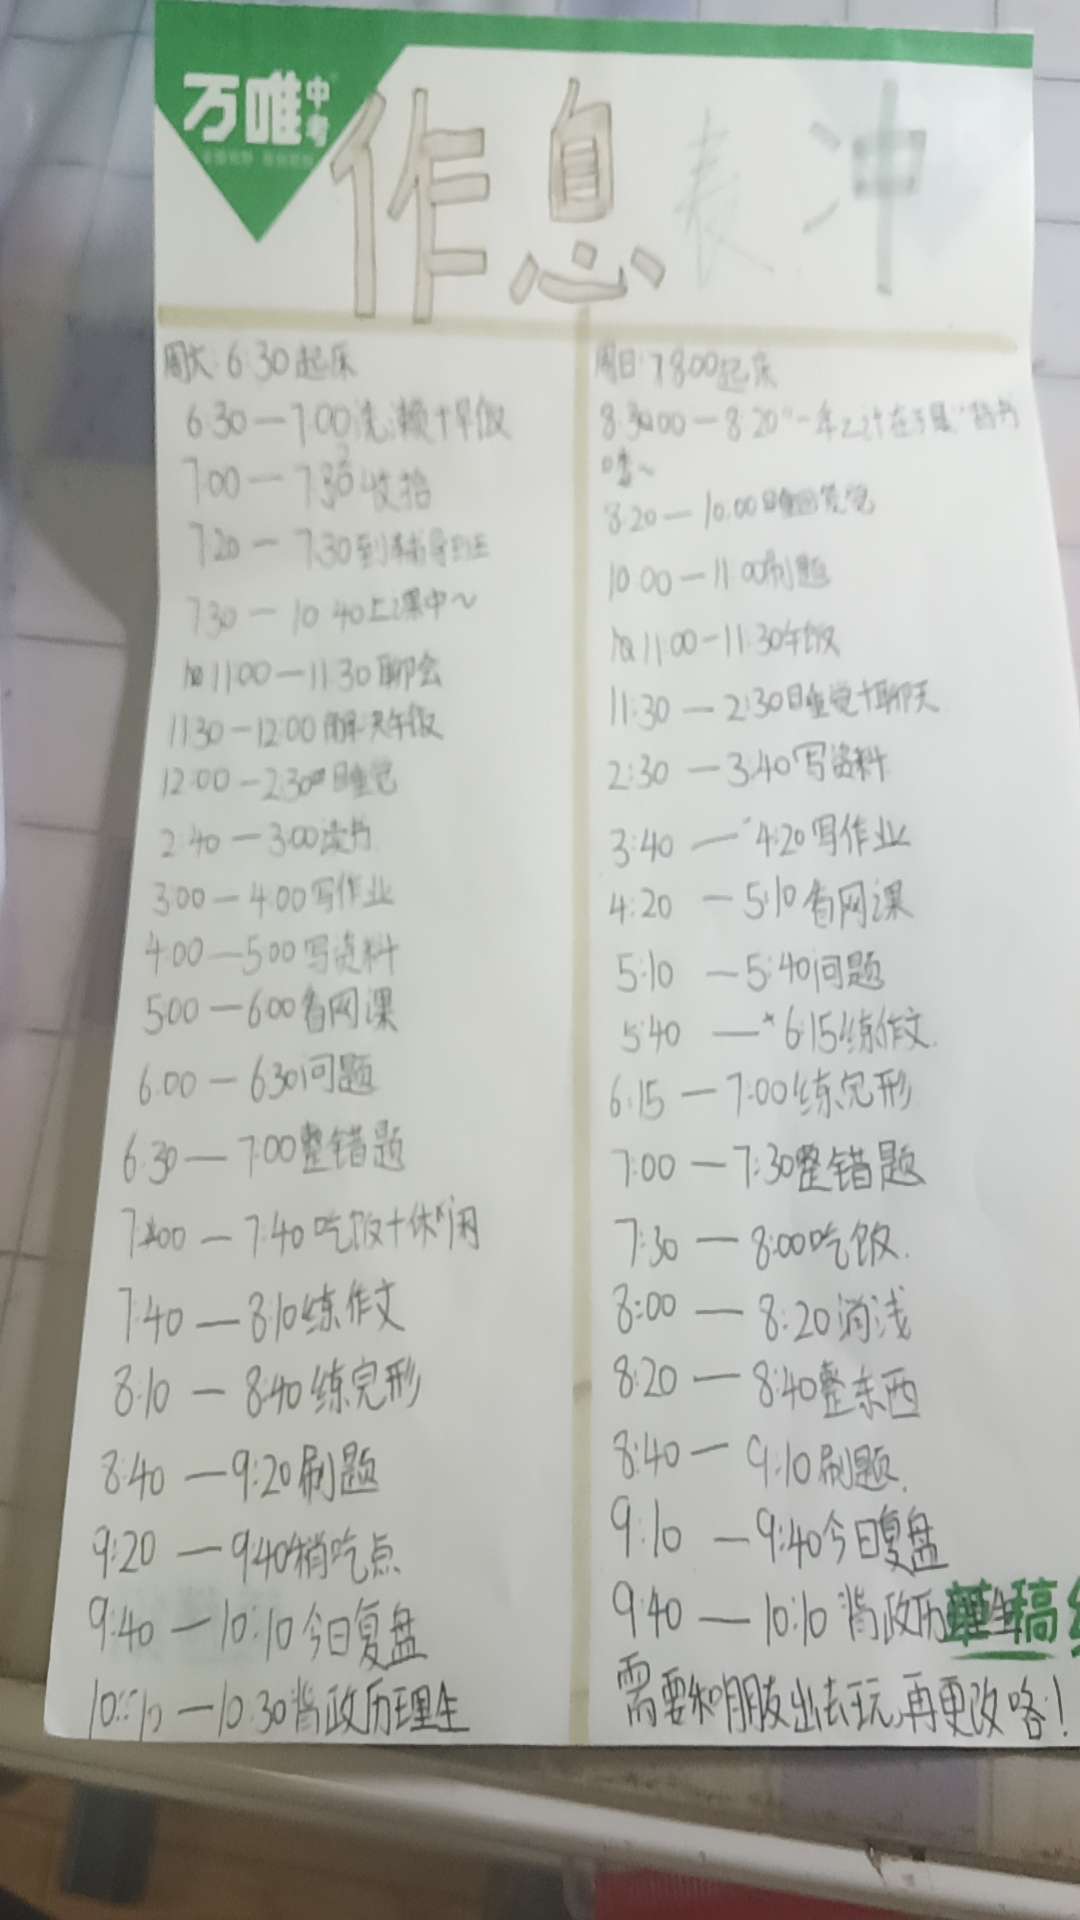 万唯中考
作息表 冲
周六:6:30起床
6:30—7:00洗漱+早饭
7:00—7:30收拾
7:20—7:30到辅导班
7:30—10:40上课中~
11:00—11:30聊会
11:30—12:00解决午饭
12:00—2:30睡觉
2:40—3:00读书
3:00—4:00写作业
4:00—5:00写资料
5:00—6:00看网课
6:00—6:30问题
6:30—7:00整错题
7:00—7:40吃饭+休闲
7:40—8:10练作文
8:10—8:40练完形
8:40—9:20刷题
9:20—9:40稍吃点
9:40—10:10今日复盘
10:10—10:30背政历理生
周日:8:00起床
8:00—8:20"一年之计在于晨"
8:20—10:00睡回笼觉
10:00—11:00刷题
11:00—11:30午饭
11:30—2:30睡觉+聊天
2:30—3:40写资料
3:40—4:20写作业
4:20—5:10看网课
5:10—5:40问题
5:40—6:15练作文
6:15—7:00练完形
7:00—7:30整错题
7:30—8:00吃饭
8:00—8:20消浅
8:20—8:40整东西
8:40—9:10刷题
9:10—9:40今日复盘
9:40—10:10背政历生
草稿
需要和朋友出去玩,再更改咯!